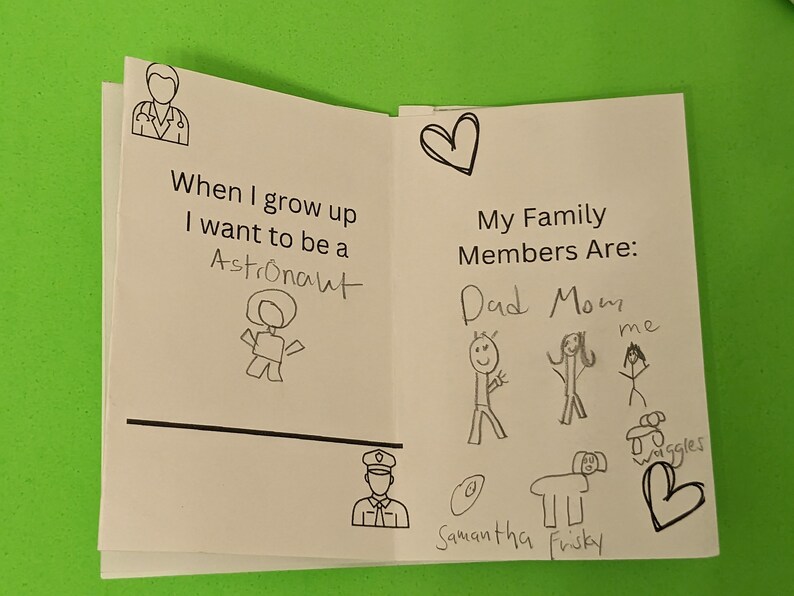 When I grow up
I want to be a
AstrOnaut
My Family
Members Are:
Dad Mom
me
Waggles
Samantha Frisky